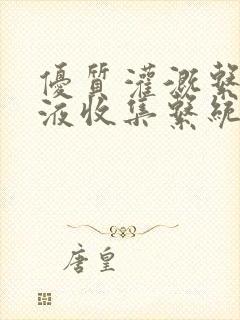 優質灌溉繫
液收集繫統
唐皇